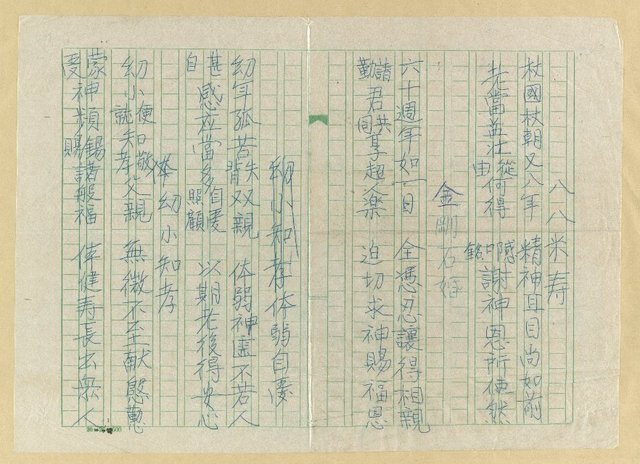 八八米寿
杖國杖朝又八年 精神耳目尚如前
老當益壯從何得 感謝神恩所使然
由 銘
金剛石婚
六十週年如一日 全憑忍讓得相親
請君共享超人樂 迫切求神賜福恩
勤 同
幼小知孝体弱自愛
幼年孤苦失双親 体弱神虛不若人
背
甚感应當多自愛 以期老後得安心
自 照顧
体幼小知孝
幼小便知敬父親 無微不至献慇懃
就 孝
蒙神頻錫諸般福 使健寿長出眾人
受 賜